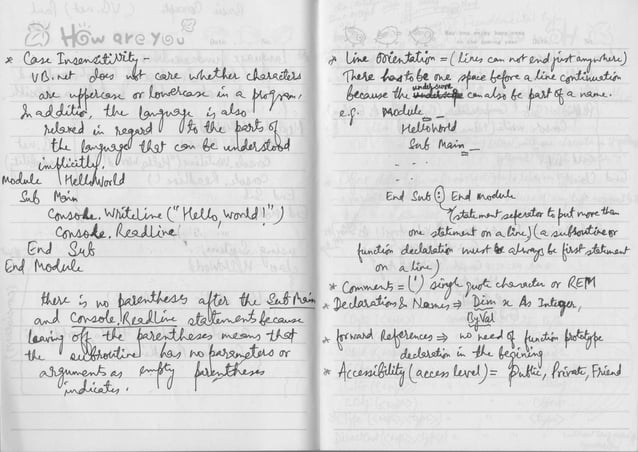 How are you
* Case Insensitivity -
VB.net does not care whether characters
are uppercase or lowercase in a program.
In addition, the language is also
relaxed in regard to the parts of
the language that can be understood
implicitly.
Module HelloWorld
Sub Main
Console.WriteLine("Hello, world!")
Console.Readline
End Sub
End Module
there is no parentheses after the Sub Main
and Console.Readline statements because
leaving off the parentheses means that
the subroutine has no parameters or
arguments as empty parentheses
indicates.
* Line Orientation = (Lines can not end just anywhere)
There has to be one space before a line continuation
because the underscore can also be part of a name.
e.g. Module _
HelloWorld
Sub Main _
. . .
.
End Sub : End module
(statement seperator to put more than
one statement on a line) (a subroutine or
function declaration must be always be first statement
on a line)
* Comments = (') single quote character or REM
* Declarations & Names ⇒ Dim x As Integer,
ByVal
* forward References ⇒ no need of function prototype
declaration in the begining
* Accessibility (access level) = Public, Private, Friend